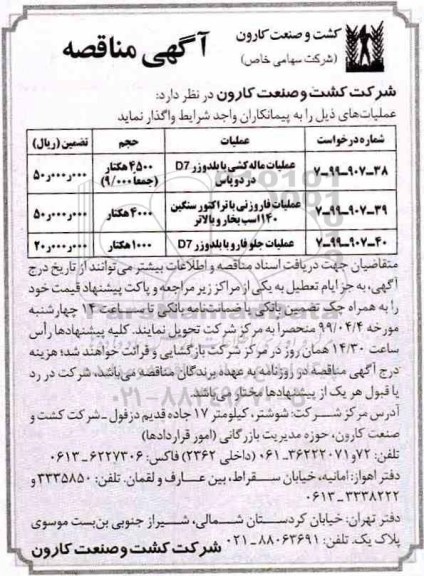 کشت و صنعت کارون
(شرکت سهامی خاص)
آگهی مناقصه
شرکت کشت و صنعت کارون در نظر دارد:
عملیات‌های ذیل را به پیمانکاران واجد شرایط واگذار نماید
شماره درخواست عملیات حجم تضمین (ریال)
۷-۹۹-۹۰۷-۳۸ عملیات ماله کشی با بلدوزر D7 در دو پاس ۴۵۰۰ هکتار (جمعا ۹/۰۰۰) ۵۰٫۰۰۰٫۰۰۰
۷-۹۹-۹۰۷-۳۹ عملیات فاروزنی با تراکتور سنگین ۱۴۰ اسب بخار و بالاتر ۴۰۰۰ هکتار ۵۰٫۰۰۰٫۰۰۰
۷-۹۹-۹۰۷-۴۰ عملیات جلو فارو با بلدوزر D7 ۱۰۰۰ هکتار ۲۰٫۰۰۰٫۰۰۰
متقاضیان جهت دریافت اسناد مناقصه و اطلاعات بیشتر می‌توانند از تاریخ درج
آگهی، به جز ایام تعطیل به یکی از مراکز زیر مراجعه و پاکت پیشنهاد قیمت خود
را به همراه چک تضمین بانکی یا ضمانت‌نامه بانکی تا ساعت ۱۴ چهارشنبه
مورخه ۹۹/۰۴/۴ منحصرا به مرکز شرکت تحویل نمایند. کلیه پیشنهادها رأس
ساعت ۱۴/۳۰ همان روز در مرکز شرکت بازگشایی و قرائت خواهند شد؛ هزینه
درج آگهی مناقصه در روزنامه به عهده برندگان مناقصه می‌باشد، شرکت در رد
یا قبول هر یک از پیشنهادها مختار می‌باشد.
آدرس مرکز شرکت: شوشتر، کیلومتر ۱۷ جاده قدیم دزفول - شرکت کشت و
صنعت کارون، حوزه مدیریت بازرگانی (امور قراردادها)
تلفن: ۷۲ و ۳۶۲۲۲۰۷۱-۰۶۱ (داخلی ۲۳۶۲) فاکس: ۶۲۲۷۳۰۶-۰۶۱۳
دفتر اهواز: امانیه، خیابان سقراط، بین عارف و لقمان. تلفن: ۳۳۳۵۸۵۰ و
۳۳۳۸۲۲۲-۰۶۱۳
دفتر تهران: خیابان کردستان شمالی، شیراز جنوبی بن‌بست موسوی
پلاک یک. تلفن: ۸۸۰۶۳۶۹۱-۰۲۱
شرکت کشت و صنعت کارون